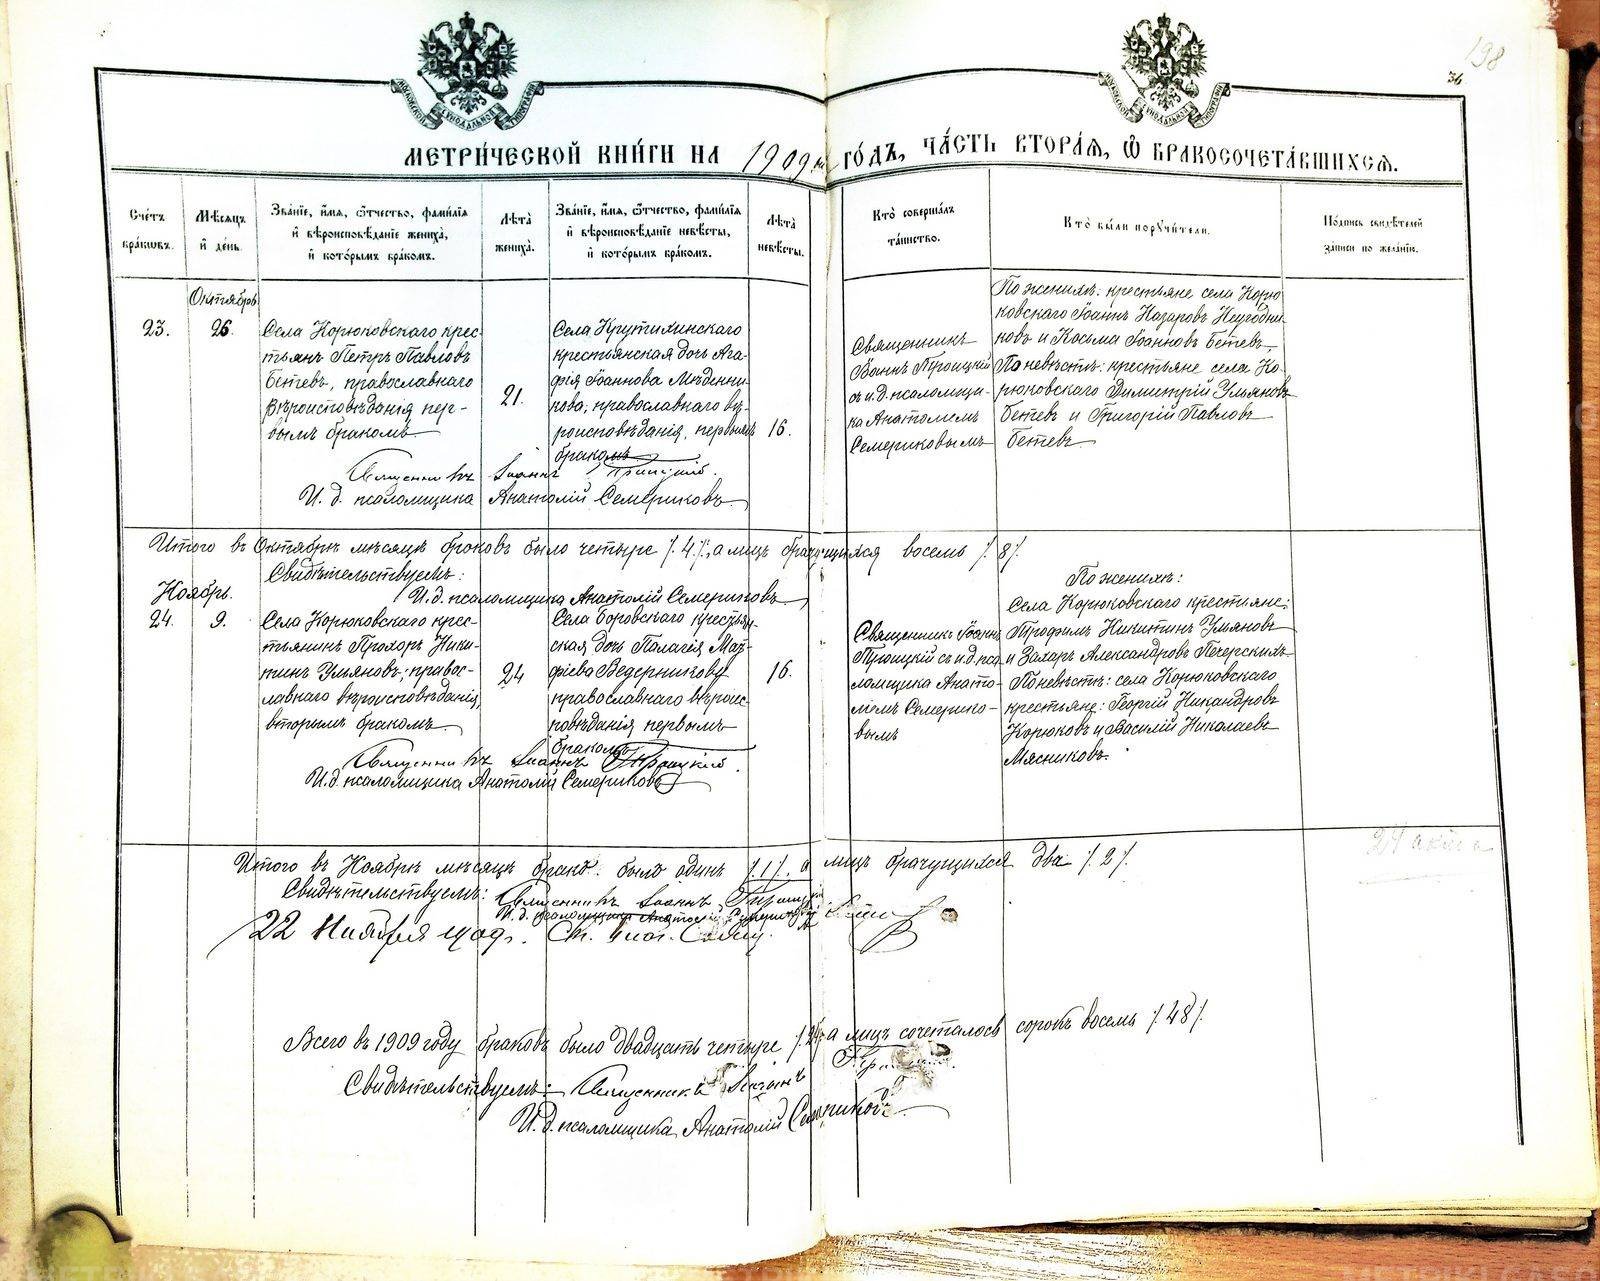 198
36
МОСКОВСКОЙ СѴНОДАЛЬНОЙ ТИПОГРАФІИ
МОСКОВСКОЙ СѴНОДАЛЬНОЙ ТИПОГРАФІИ
МЕТРИ́ЧЕСКОЙ КНИ́ГИ НА 1909 й ГО́ДЪ, ЧА́СТЬ ВТОРА́Я, Ѽ БРАКОСОЧЕТА́ВШИХСЯ.
Сче́тъ бра́ковъ.
Мѣ́сяцъ и҆ де́нь.
Зва́нїе, и҆́мя, ѻ҆́тчество, фами́лїя и҆ вѣроисповѣ́данїе жениха̀, и҆ кото́рымъ бра́комъ.
Лѣ́та жениха̀.
Зва́нїе, и҆́мя, ѻ҆́тчество, фами́лїя и҆ вѣроисповѣ́данїе невѣ́сты, и҆ кото́рымъ бра́комъ.
Лѣ́та невѣ́сты.
Кто̀ соверша́лъ та́инство.
Кто̀ бы́ли порꙋчи́тели.
По́дпись свидѣ́телей за́писи по жела́нїю.
Октябрь
23.
26.
Села Корюковскаго крес-
тьянъ Петръ Павловъ
Бетевъ, православнаго
вѣроисповѣданія пер-
вымъ бракомъ
21.
Села Крутихинскаго
крестьянская дочь Ага-
фія Іоаннова Мѣденни-
кова, православнаго вѣ-
роисповѣданія, первымъ
бракомъ
16.
Священникъ
Іоаннъ Троицкій
съ и.д. псаломщи-
ка Анатоліемъ
Семериковымъ
По женихѣ: крестьяне села Корю
ковскаго Іоаннъ Назаровъ Неугодни-
ковъ и Косьма Іоанновъ Бетевъ,
По невѣстѣ: крестьяне села Ко-
рюковскаго Димитрій Ульяновъ
Бетевъ и Григорій Павловъ
Бетевъ
Священникъ Іоаннъ Троицкій.
И. д. псаломщика Анатолій Семериковъ
Итого въ Октябрѣ мѣсяцѣ браковъ было четыре /.4./, а лицъ брачущихся восемь /.8/.
Свидѣтельствуемъ:
И.д. псаломщика Анатолій Семериковъ
Ноябрь.
24.
9.
Села Корюковскаго крес-
тьянинъ Прохоръ Ники-
тинъ Ульяновъ, правос-
лавнаго вѣроисповѣданія,
вторымъ бракомъ
24
Села Боровскаго крестьян-
ская дочь Палагія Мат-
фіева Ведерникову
православнаго вѣроис-
повѣданія первымъ
бракомъ
16.
Священникъ Іоаннъ
Троицкій съ и.д. пса-
ломщика Анато-
ліемъ Семерико-
вымъ
По женихѣ:
Села Корюковскаго крестьяне:
Трофимъ Никитинъ Ульяновъ
и Захаръ Александровъ Печерскихъ
По невѣстѣ: села Корюковскаго
крестьяне: Георгій Никандровъ
Корюковъ и Василій Николаевъ
Мясниковъ.
Священникъ Іоаннъ Троицкій.
И.д. псаломщика Анатолій Семериковъ
24 акта
Итого въ Ноябрѣ мѣсяцѣ браков. было одинъ /.1./. а лицъ брачущихся два /.2/.
Свидѣтельствуемъ: Священникъ Іоаннъ Троицкій
И.д. псаломщика Анатолій Семериковъ
22 Ноября 1909 г.
Всего въ 1909 году браковъ было двадцать четыре /.24/. а лицъ сочеталось сорокъ восемь /.48/.
Свидѣтельствуемъ: Священникъ Іоаннъ Троицкій.
И.д. псаломщика Анатолій Семериковъ